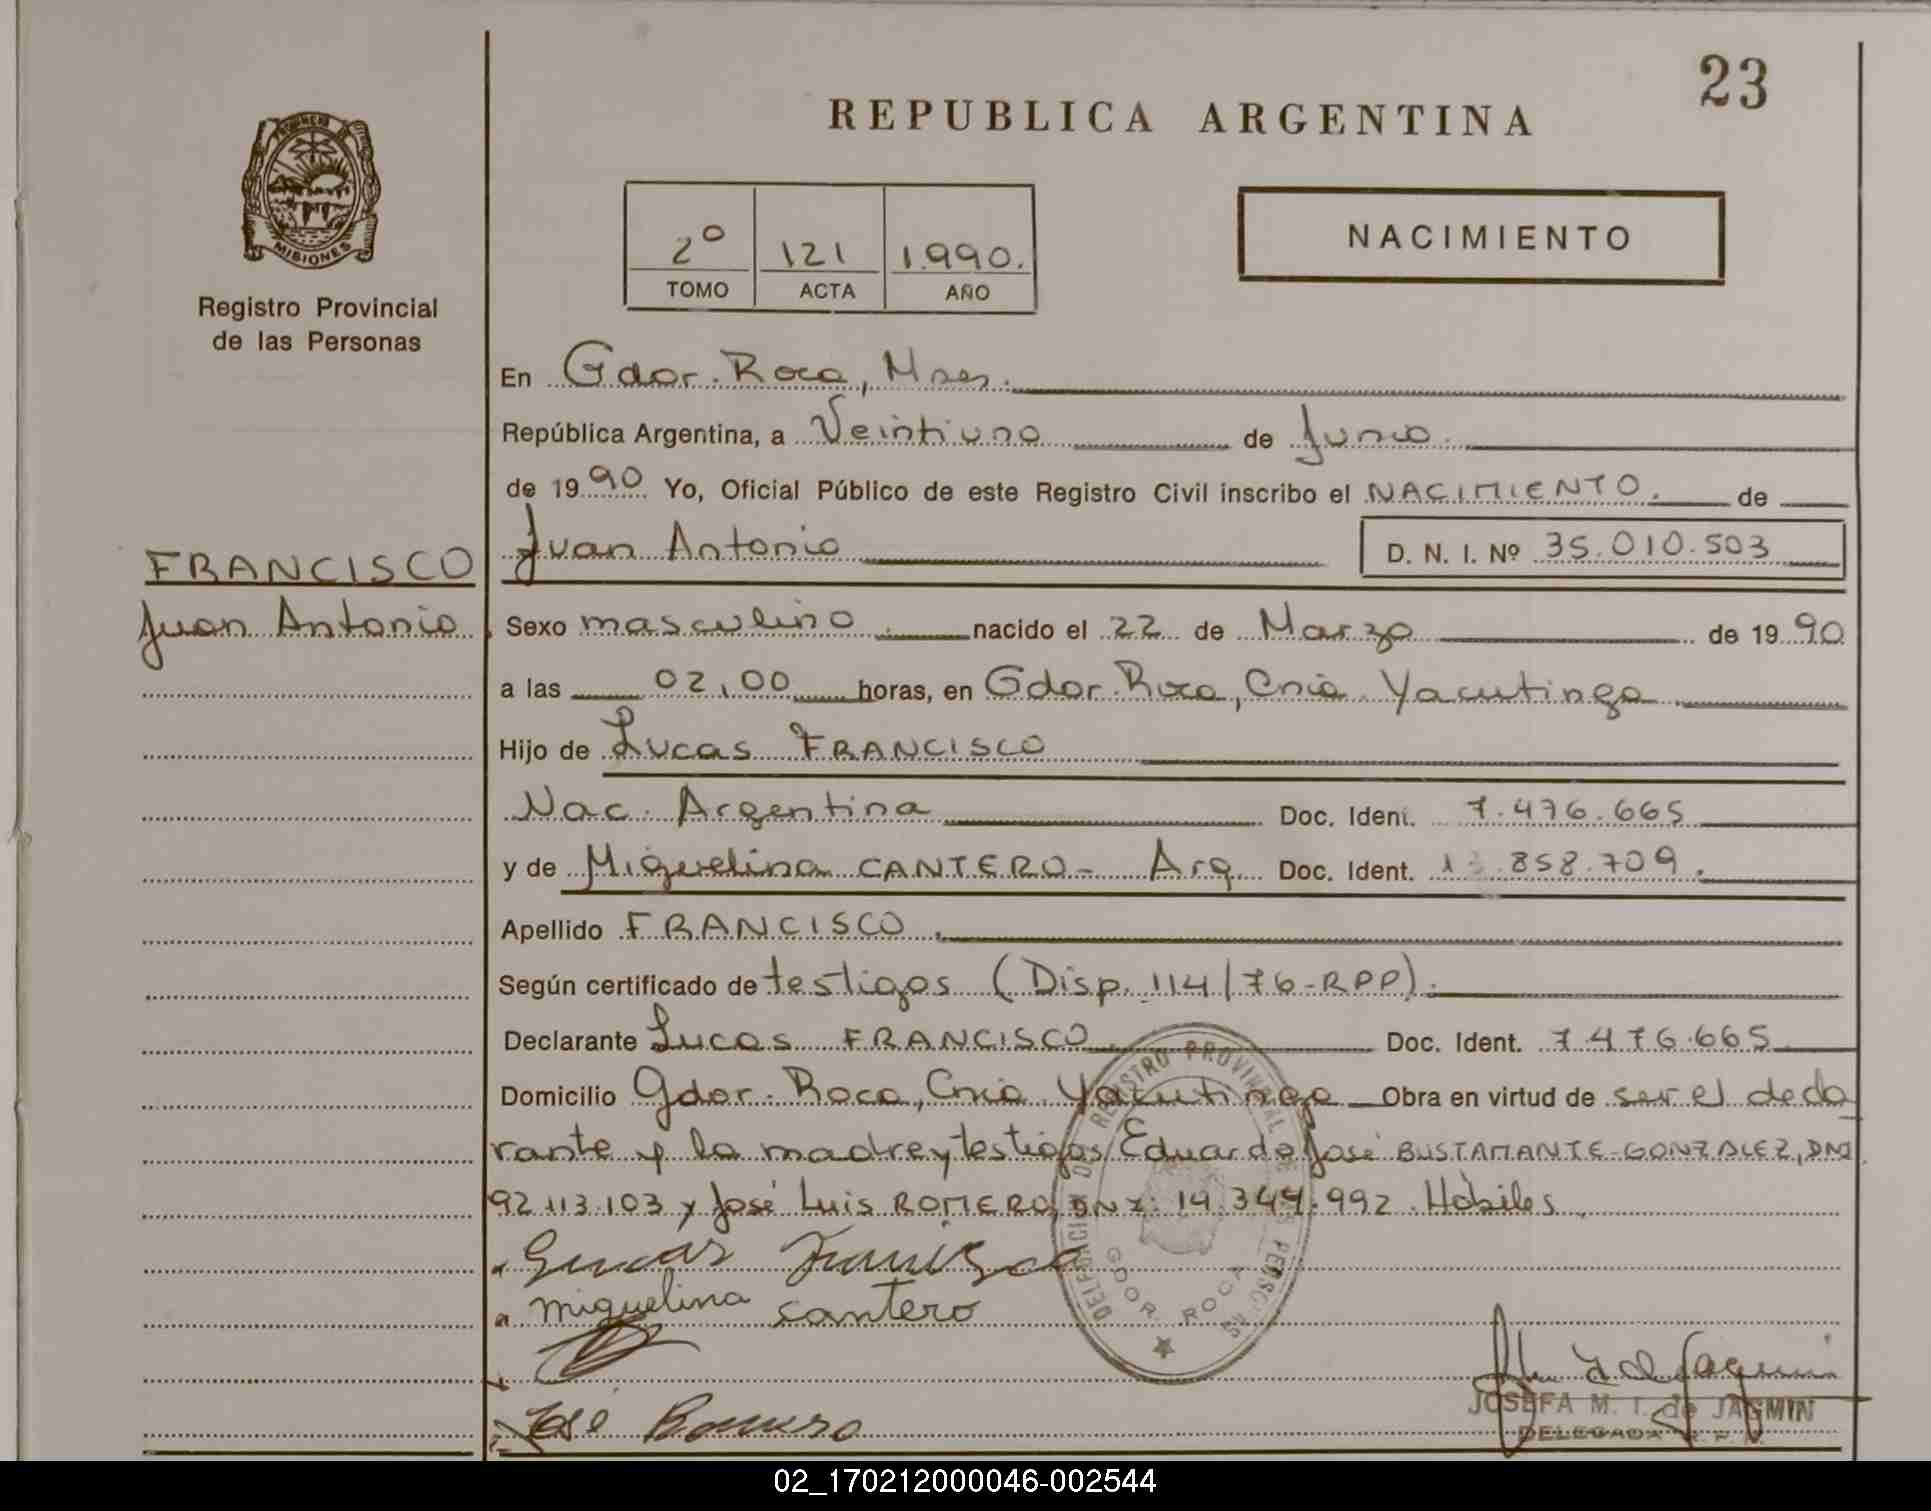 23
REPUBLICA ARGENTINA
PROVINCIA DE
MISIONES
Registro Provincial
de las Personas
2º 121 1.990.
TOMO ACTA AÑO
NACIMIENTO
En Gdor. Roca, Mnes.
República Argentina, a Veintiuno de Junio.
de 1990 Yo, Oficial Público de este Registro Civil inscribo el NACIMIENTO. de
FRANCISCO
Juan Antonio
Juan Antonio D. N. I. Nº 35.010.503
Sexo masculino. nacido el 22 de Marzo de 1990
a las 02,00 horas, en Gdor. Roca, Cnia. Yacutinga
Hijo de Lucas FRANCISCO
Nac. Argentina Doc. Ident. 7.476.665
y de Miguelina CANTERO- Arg. Doc. Ident. .858.709.
Apellido FRANCISCO.
Según certificado de testigos (Disp. 114/76-RPP).
Declarante Lucas FRANCISCO. Doc. Ident. 7.476.665
Domicilio Gdor. Roca, Cnia. Yacutinga Obra en virtud de ser el decla
rante y la madre y testigos Eduardo José BUSTAMANTE-GONZALEZ, DNI
92.113.103 y José Luis ROMERO, DNI: 14.344.992. Hábiles.
Lucas Francisco
miguelina cantero
José Romero
DELEGACION DEL REGISTRO PROVINCIAL DE LAS PERSONAS
GDOR. ROCA
JOSEFA M. T. de JAGMIN
DELEGADA R. P. P.
02_170212000046-002544